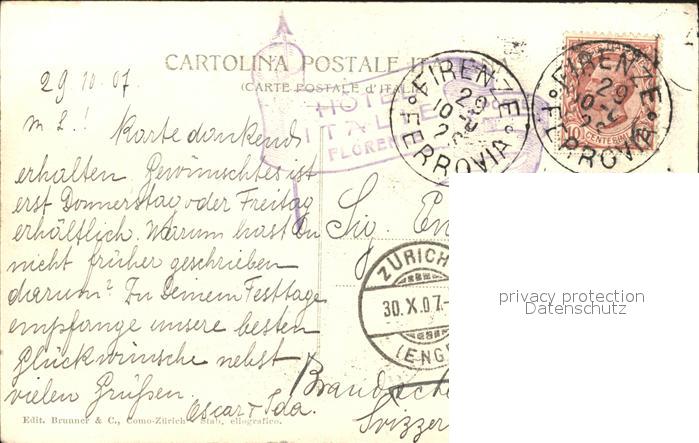 CARTOLINA POSTALE ITALIANA
(CARTE POSTALE d'ITALIE)
HOTEL
ITALIE
FLORENCE
FIRENZE
29
10-0
FERROVIA
FIRENZE
29
10-0
FERROVIA
10 CENTESIMI
29 10.07.
m L! Karte dankend
erhalten Gewünschtes ist
erst Donnerstag oder Freitag
erhältlich. Warum hast Du
nicht früher geschrieben
darum? Zu Deinem Festtage
empfange unsere besten
Glückwünsche nebst
vielen Grüßen.
Oscar & Ida.
Sig.
ZÜRICH
30.X.07.-
(ENGE
Svizzer
privacy protection
Datenschutz
Edit. Brunner & C., Como-Zürich Stab. eliografico.